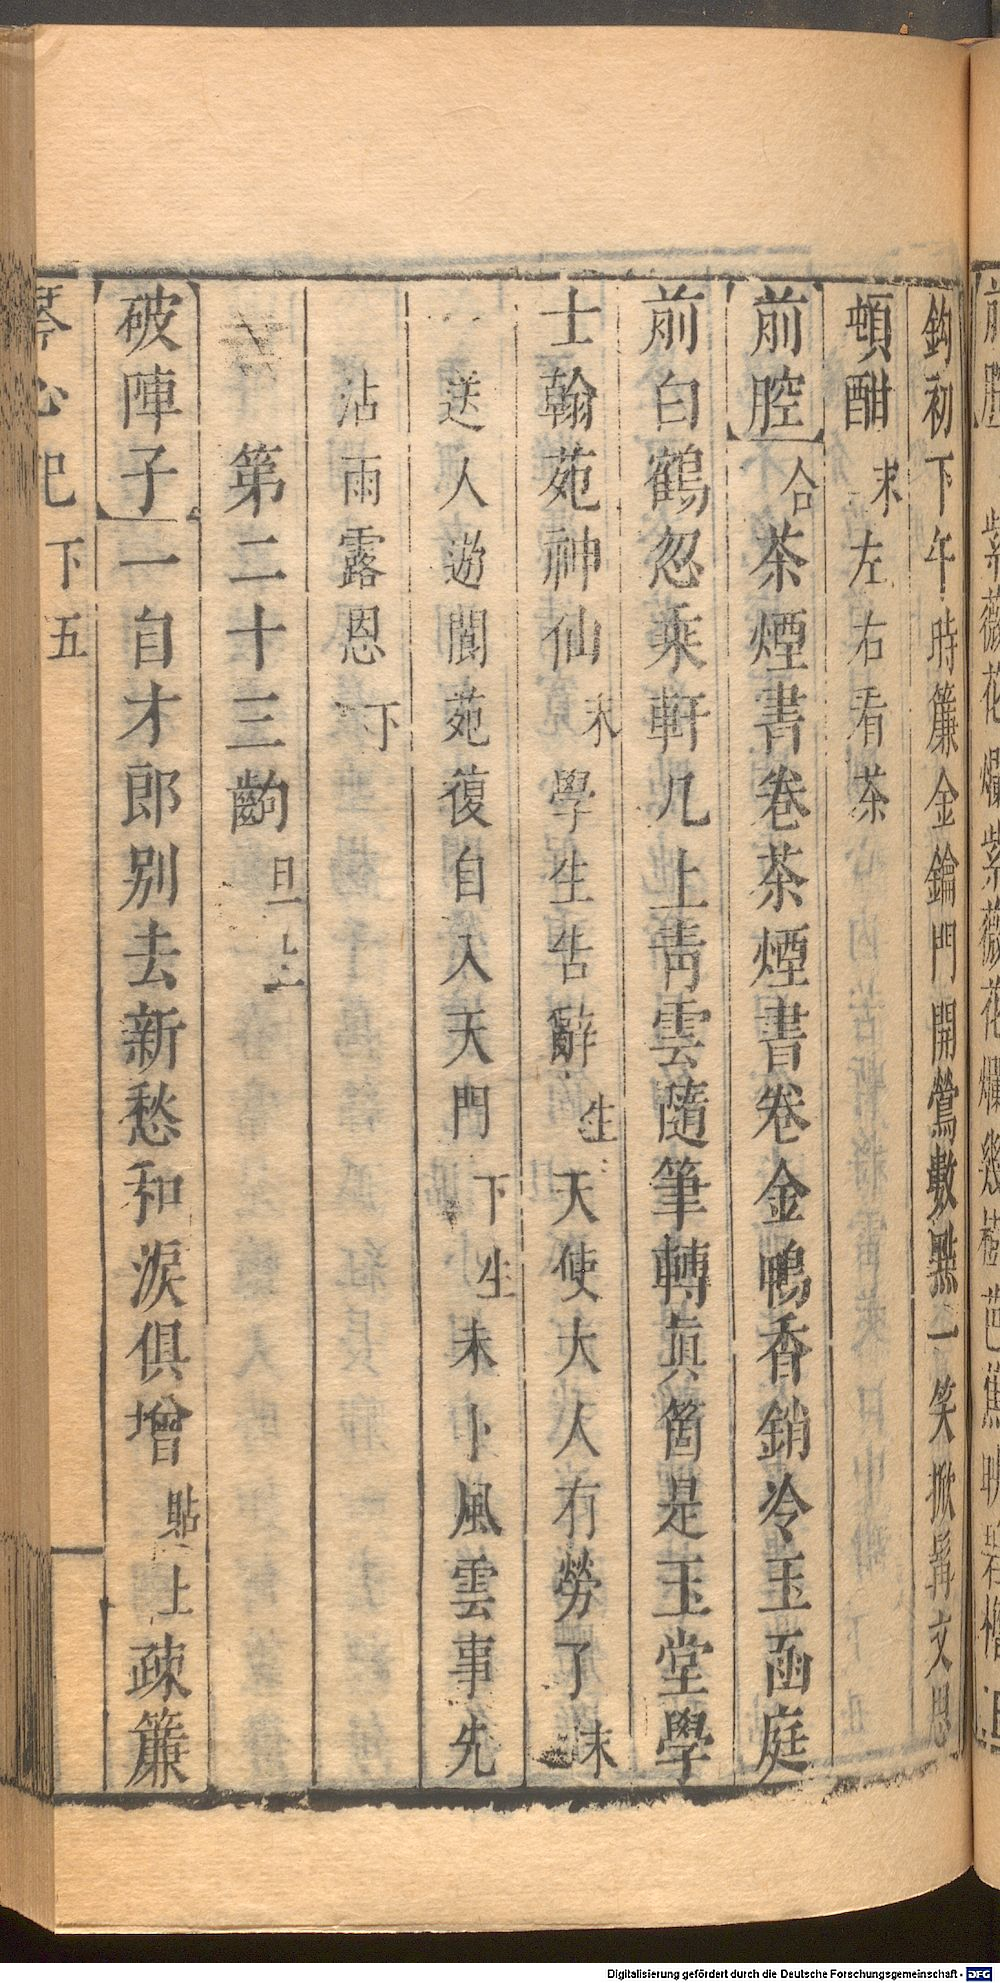 紫薇花爛紫薇花爛幾樹芭蕉映碧
鈎初下午時簾金鑰門開鶯數點一笑掀髯文思
頓酣末左右看茶
前腔合茶煙書卷茶煙書卷金鴨香銷冷玉函庭
前白鶴忽乘軒几上靑雲隨筆轉眞箇是玉堂學
士翰苑神仙末學生告辭生天使大人有勞了末
送人遊閬苑復自入天門下生未卜風雲事先
沾雨露恩下
第二十三齣旦上
破陣子一自才郎別去新愁和淚俱增貼上疎簾
琴心記 下 五
Digitalisierung gefördert durch die Deutsche Forschungsgemeinschaft - DFG